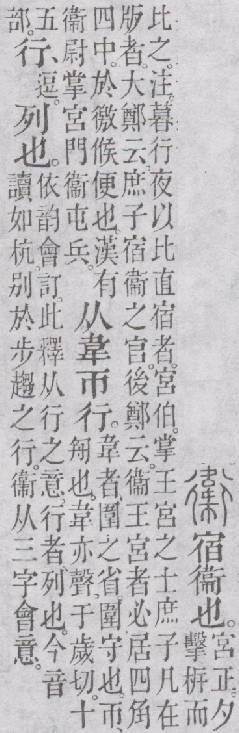 衞宿衞也。宮正。夕
擊柝而
比之。注。暮行夜以比直宿者。宮伯。掌王宮之士庶子凡在
版者。大鄭云。庶子宿衞之官。後鄭云。衞王宮者必居四角
四中。於徼候便也。漢有
衞尉掌宮門衞屯兵。
从韋帀行。
韋者、圍之省。圍守也。帀、
𠣘也。韋亦聲。于歲切。十
五
部。
行、逗。列也。
依韵會訂。此釋从行之意。行者、列也。今音
讀如杭。别於步趨之行。衞从三字會意。